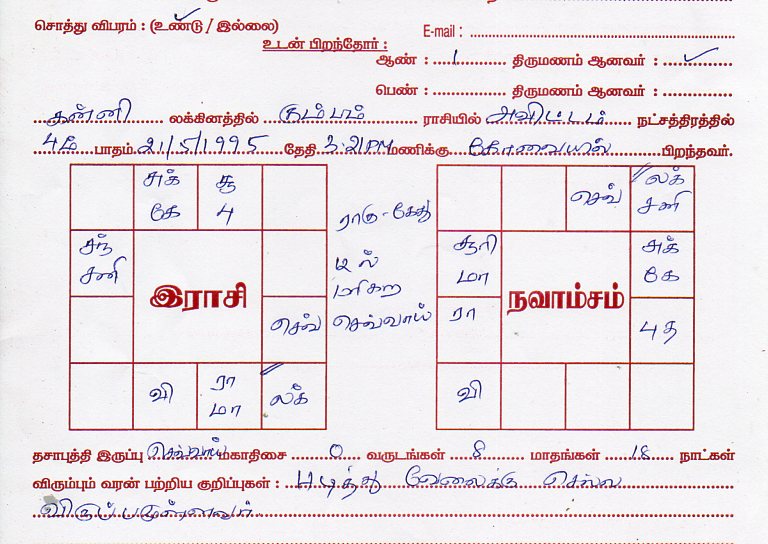 சொத்து விபரம் : (உண்டு / இல்லை)
E-mail :
உடன் பிறந்தோர் :
ஆண் : 1 திருமணம் ஆனவர் : ✓
பெண் : திருமணம் ஆனவர் :
கன்னி லக்கினத்தில் கும்பம் ராசியில் அவிட்டம் நட்சத்திரத்தில்
4ம் பாதம் 21/5/1995 தேதி 3.21PM மணிக்கு கோவையில் பிறந்தவர்.
சுக் கே
சூ 4
சந் சனி
இராசி
செவ்
வி
ரா மா
லக்
ராகு - கேது
செவ்வாய்
செவ்
லக் சனி
சூரி மா
நவாம்சம்
சுக் கே
ரா
4 த
வி
தசாபுத்தி இருப்பு செவ்வாய் மகாதிசை 0 வருடங்கள் 8 மாதங்கள் 18 நாட்கள்
விரும்பும் வரன் பற்றிய குறிப்புகள் : படித்து வேலைக்கு செல்ல
விருப்பமுள்ளவர்